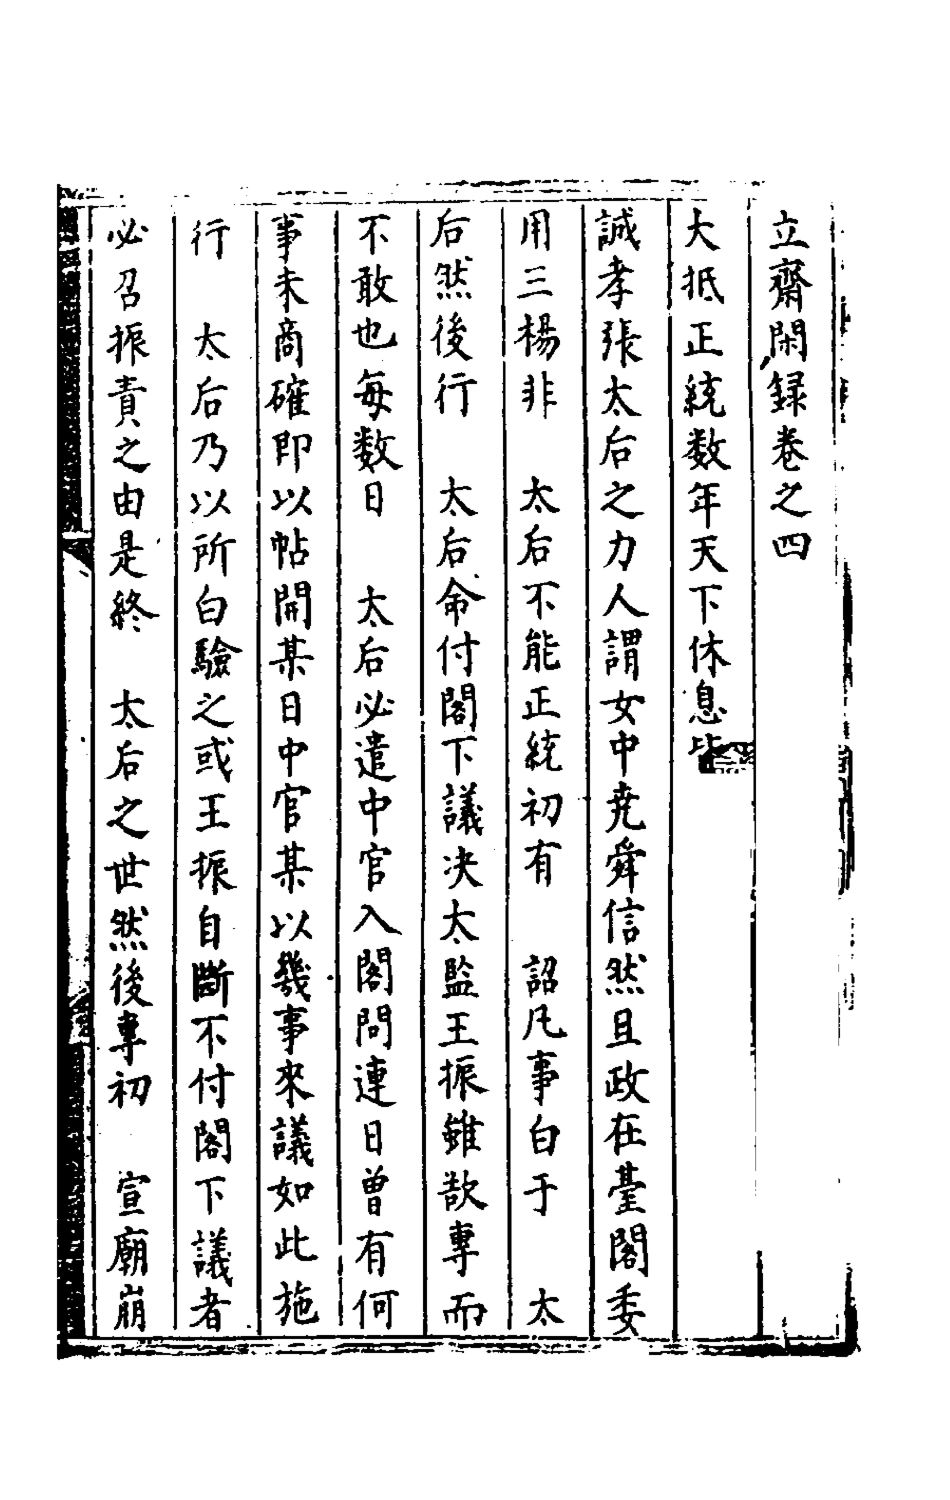 立齋閑録卷之四
大抵正統数年天下休息皆
誠孝張太后之力人謂女中尭舜信然且政在臺閣委
用三楊非　太后不能正統初有　詔凡事白于　太
后然後行　太后命付閣下議决太監王振雖欲專而
不敢也每数日　太后必遣中官入閣問連日曾有何
事来商確即以帖開某日中官某以幾事來議如此施
行　太后乃以所白驗之或王振自斷不付閣下議者
必召振責之由是終　太后之世然後專初　宣廟崩